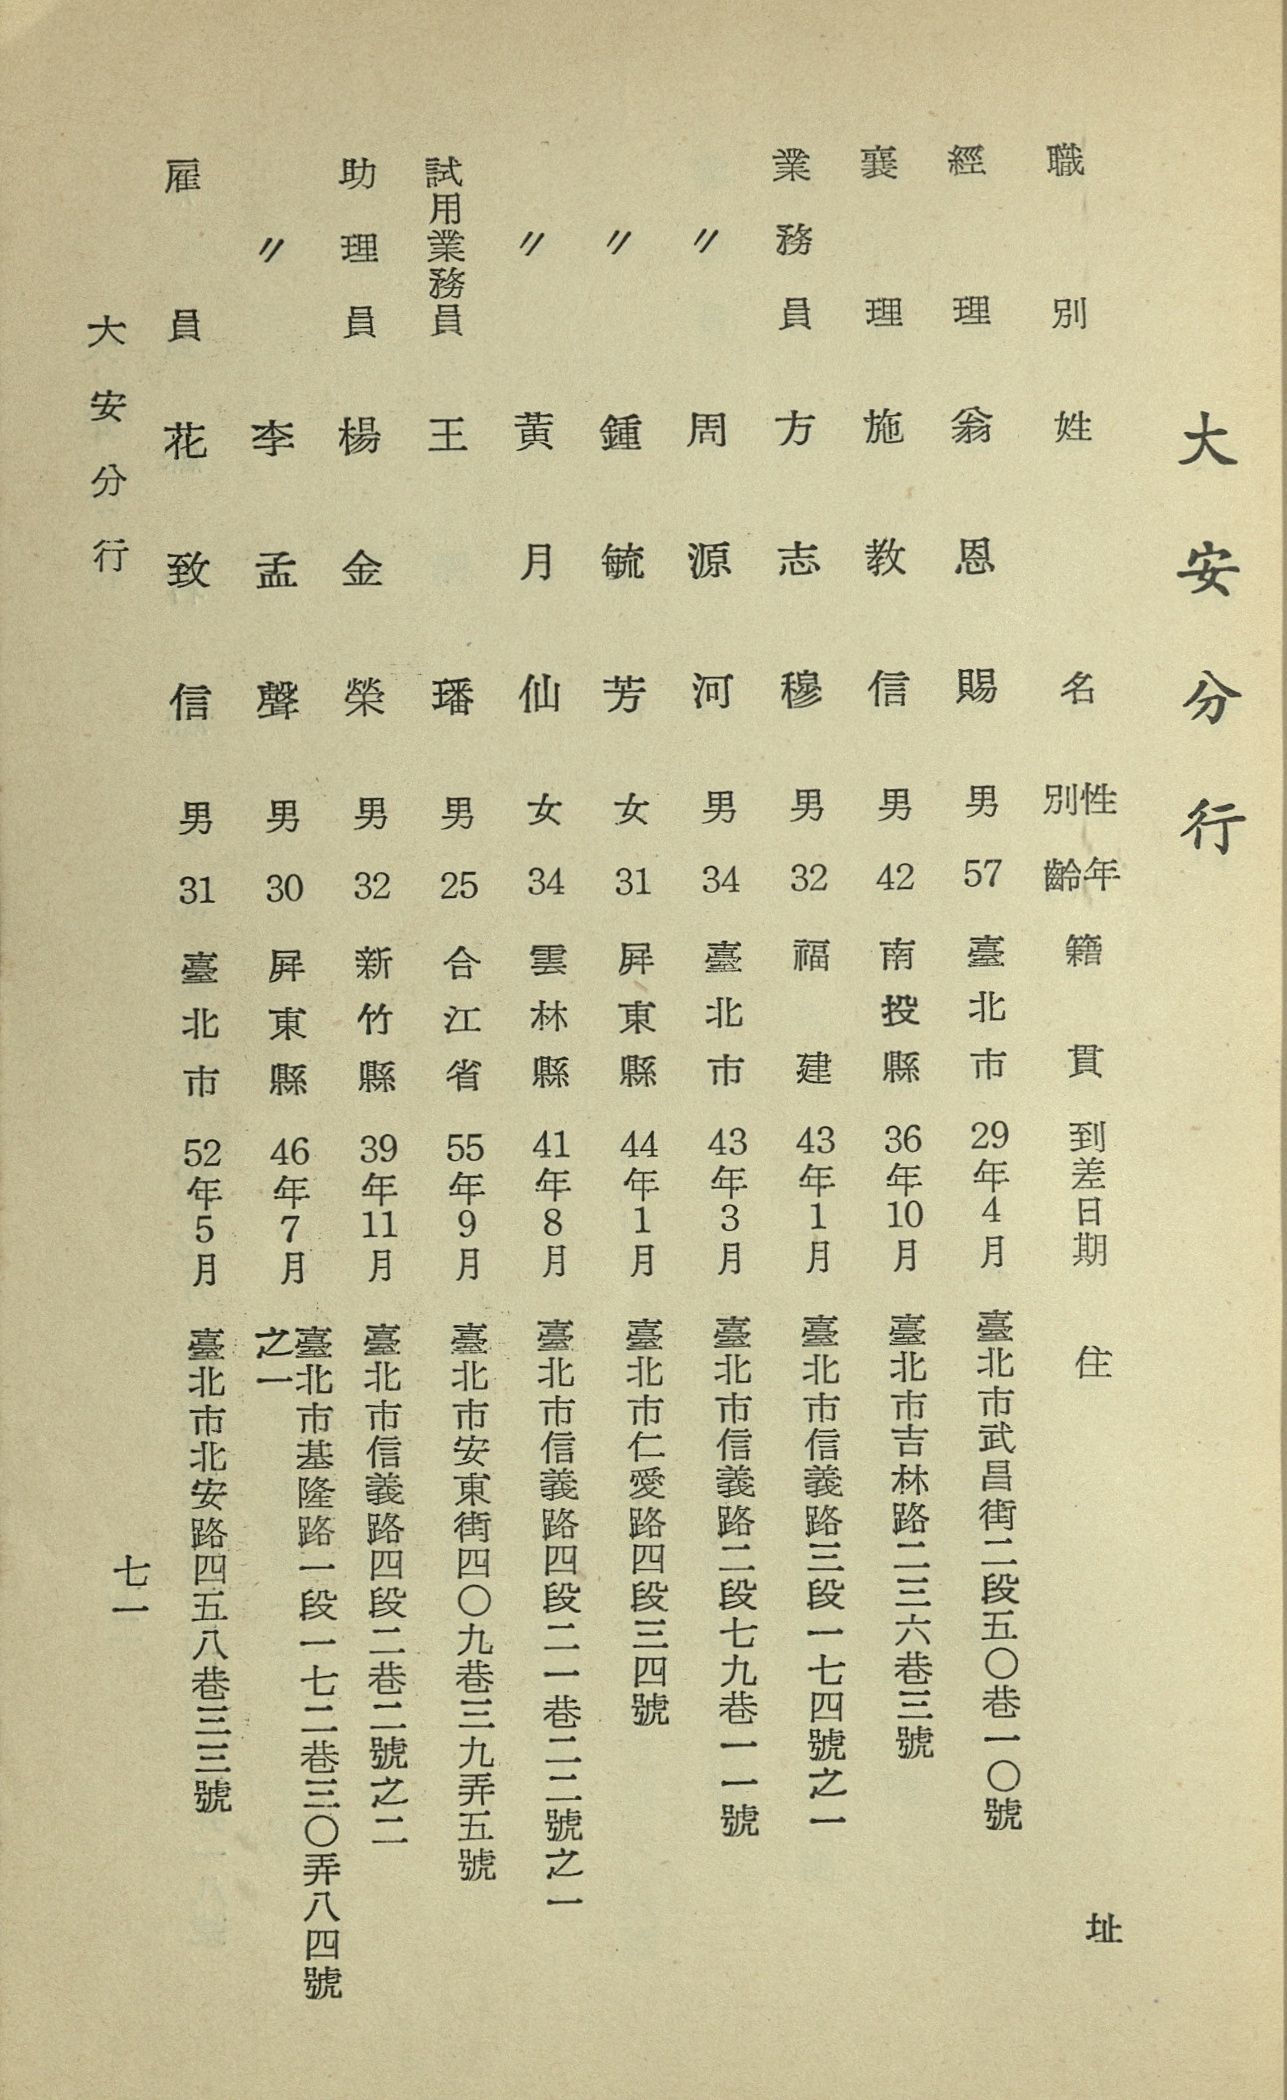 大安分行
職別 姓名 性別 年齡 籍貫 到差日期 住址
經理 翁恩賜 男 57 臺北市 29年4月 臺北市武昌街二段五〇巷一〇號
襄理 施教信 男 42 南投縣 36年10月 臺北市吉林路二三六巷三號
業務員 方志穆 男 32 福建 43年1月 臺北市信義路三段一七四號之一
〃 周源河 男 34 臺北市 43年3月 臺北市信義路二段七九巷一一號
〃 鍾毓芳 女 31 屏東縣 44年1月 臺北市仁愛路四段三四號
〃 黃月仙 女 34 雲林縣 41年8月 臺北市信義路四段二一巷二二號之一
試用業務員 王璠 男 25 合江省 55年9月 臺北市安東街四〇九巷三九弄五號
助理員 楊金榮 男 32 新竹縣 39年11月 臺北市信義路四段二巷二號之二
〃 李孟聲 男 30 屏東縣 46年7月 臺北市基隆路一段一七二巷三〇弄八四號
之一
雇員 花致信 男 31 臺北市 52年5月 臺北市北安路四五八巷三三號
大安分行
七一